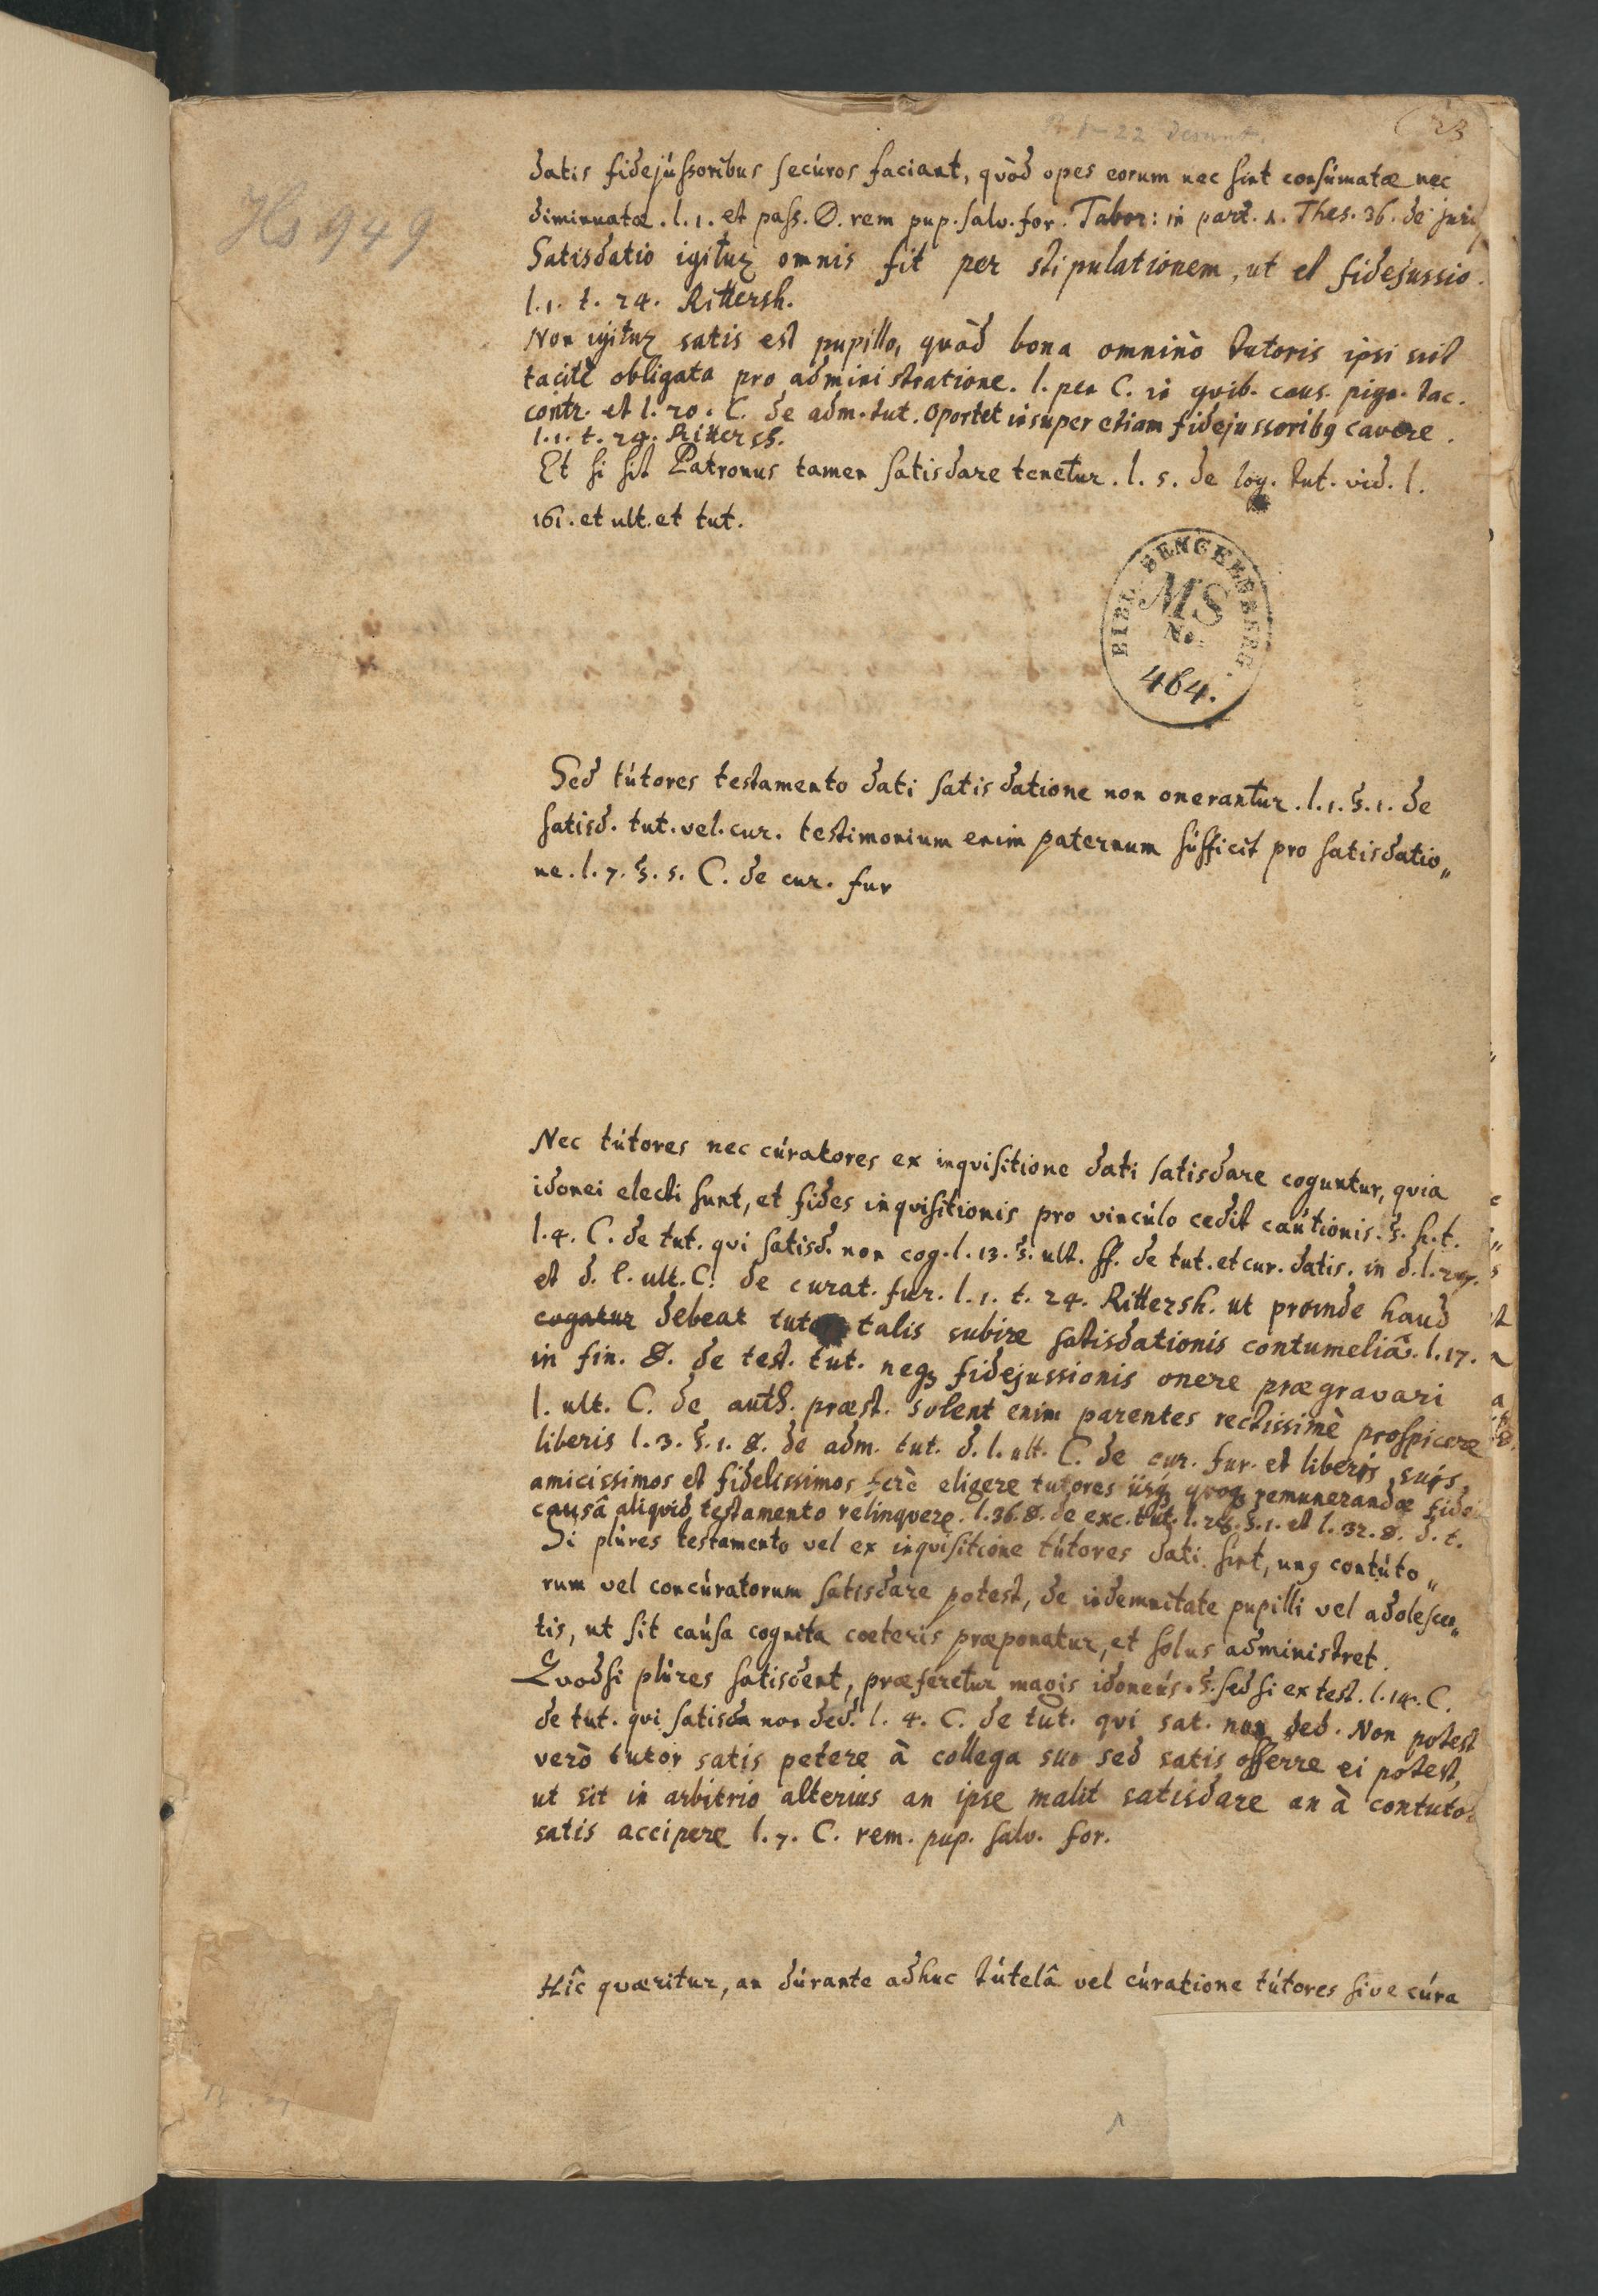 S. 1-22 desunt.
23
Hs 949
datis fidejússoribus secúros faciant, qùod opes eorum nec sint consúmatæ nec
diminuatæ. l. 1. et pass. D. rem pup. salv. for. Tabor: in part. 2. Thes. 36. de juri
Satisdatio igitur omnis fit per stipulationem, ut et fidejussio.
l. 1. t. 24. Rittersh.
Non igitur satis est pupillo, quòd bona omninò tutoris ipsi sint
tacitè obligata pro administratione. l. pen C. in quib. caus. pign. tac.
contr. et l. 20. C. de adm. tut. oportet insuper etiam fidejussoribꝰ cavere.
l. 1. t. 24. Rittersh.
Et si sit Patronus tamen satisdare tenetur. l. 5. de leg. tut. vid. l.
161. et ult. et tut.
BIBL. SENCKENBERG
MS
No.
464.
Sed tútores testamento dati satisdatione non onerantur. l. 1. §. 1. de
satisd. tut. vel. cur. testimonium enim paternum súfficit pro satisdatio„
ne. l. 7. §. 5. C. de cur. fur
Nec tútores nec cúratores ex inquisitione dati satisdare coguntur, quia
idonei electi sunt, et fides inquisitionis pro vincúlo cedit caútionis. §. h. t.
l. 4. C. de tut. qui satisd. non cog. l. 13. §. ult. ff. de tut. et cur. datis. in d. l. 27.
et d. l. ult. C. de curat. fur. l. 1. t. 24. Rittersh. ut proinde haud
cogatur debeat tutor talis subire satisdationis contumeliā. l. 17.
in fin. D. de test. tut. neqꝫ fidejussionis onere prægravari
l. ult. C. de auth. præst. solent enim parentes rectissimè prospicere
liberis l. 3. §. 1. D. de adm. tut. d. l. ult. C. de cur. fur. et liberis suis
amicissimos et fidelissimos ferè eligere tutores iisqꝫ quoqꝫ remunerandæ fidei
causâ aliquid testamento relinquere. l. 36. D. de exc. tut. l. 28. §. 1. et l. 32. D. d. t.
Si plúres testamento vel ex inquisitione tútores dati sint, unꝰ contúto„
rum vel concúratorum satisdare potest, de indemnitate pupilli vel adolescen„
tis, ut sit caúsa cognita cœteris præponatur, et solus administret.
Quodsi plúres satisdent, præferetur magis idoneús. §. sed si ex test. l. 14. C.
de tut. qui satisda non ded. l. 4. C. de tut. qui sat. non ded. Non potest
verò tutor satis petere à collega suo sed satis offerre ei potest,
ut sit in arbitrio alterius an ipse malit satisdare an à contuto:
satis accipere l. 7. C. rem. pup. salv. for.
Hîc quæritur, an dúrante adhuc tútelâ vel cúratione tútores sive cúra
1